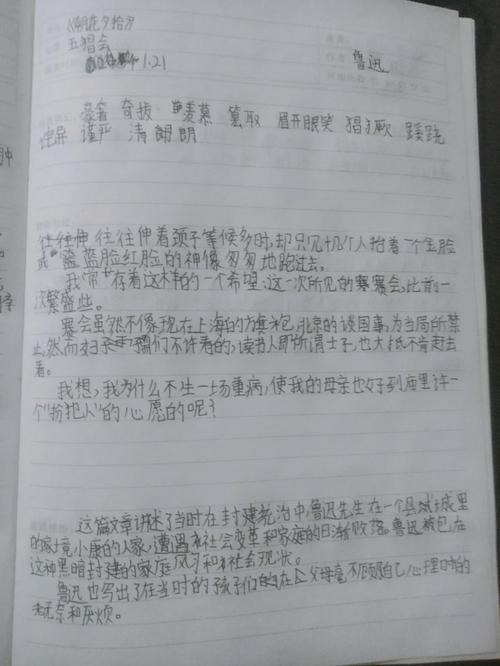 《朝花夕拾》
五猖会
1.21
鲁迅
豪奢 奇拔 羡慕 篡取 眉开眼笑 猖獗 蹊跷
屏 谨严 清朗朗
往往伸着颈子等候多时,却只见十几个人抬着一个金脸
或蓝脸红脸的神像匆匆地跑过去。
我常存着这样的一个希望:这一次所见的赛会,比前一
次繁盛些。
赛会虽然不像现在上海的旗袍,北京的谈国事,为当局所禁
止,然而妇孺们不许看的,读书人即所谓士子,也大抵不肯赶去
看。
我想,我为什么不生一场重病,使我的母亲也好到庙里许一
个"扮犯人"的心愿的呢?
这篇文章讲述了当时在封建统治中,鲁迅先生在一个县城里
的家境小康的人家,遭遇社会变革和家庭的日渐败落。鲁迅被包在
这种黑暗封建的家庭风习和社会现状。
鲁迅也写出了在当时的孩子们的在父母毫不顾自己心理时的
无奈和厌烦。